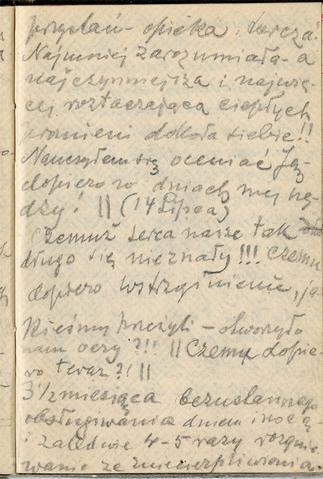 przystań - opieka i tarcza.
Najmniej zarozumiała - a
najczynniejsza i najwię-
cej roztaczająca ciepłych
promieni dokoła siebie!!
Nauczyłem się oceniać Ją
dopiero w dniach mej nę-
dzy! || (14 Lipca)
Czemuż serca nasze tak
długo się nieznały!!! Czemu
dopiero wstrząśnienie, ja-
kieśmy przeżyli - otworzyło
nam oczy?!! || Czemu dopie-
ro teraz?! ||
3 1/2 miesiąca bezustannego
obsługiwania dniem i nocą -
i zaledwie 4-5 razy
ze zniecierpliwienia.